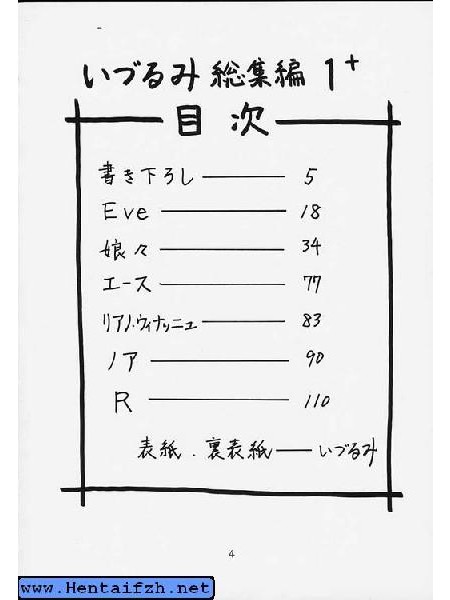 いづるみ 総集編 1+
目次
書き下ろし 5
Eve 18
娘々 34
エース 77
リアノ・ウィナッニュ 83
ノア 90
R 110
表紙・裏表紙 いづるみ
4
www.Hentaifzh.net